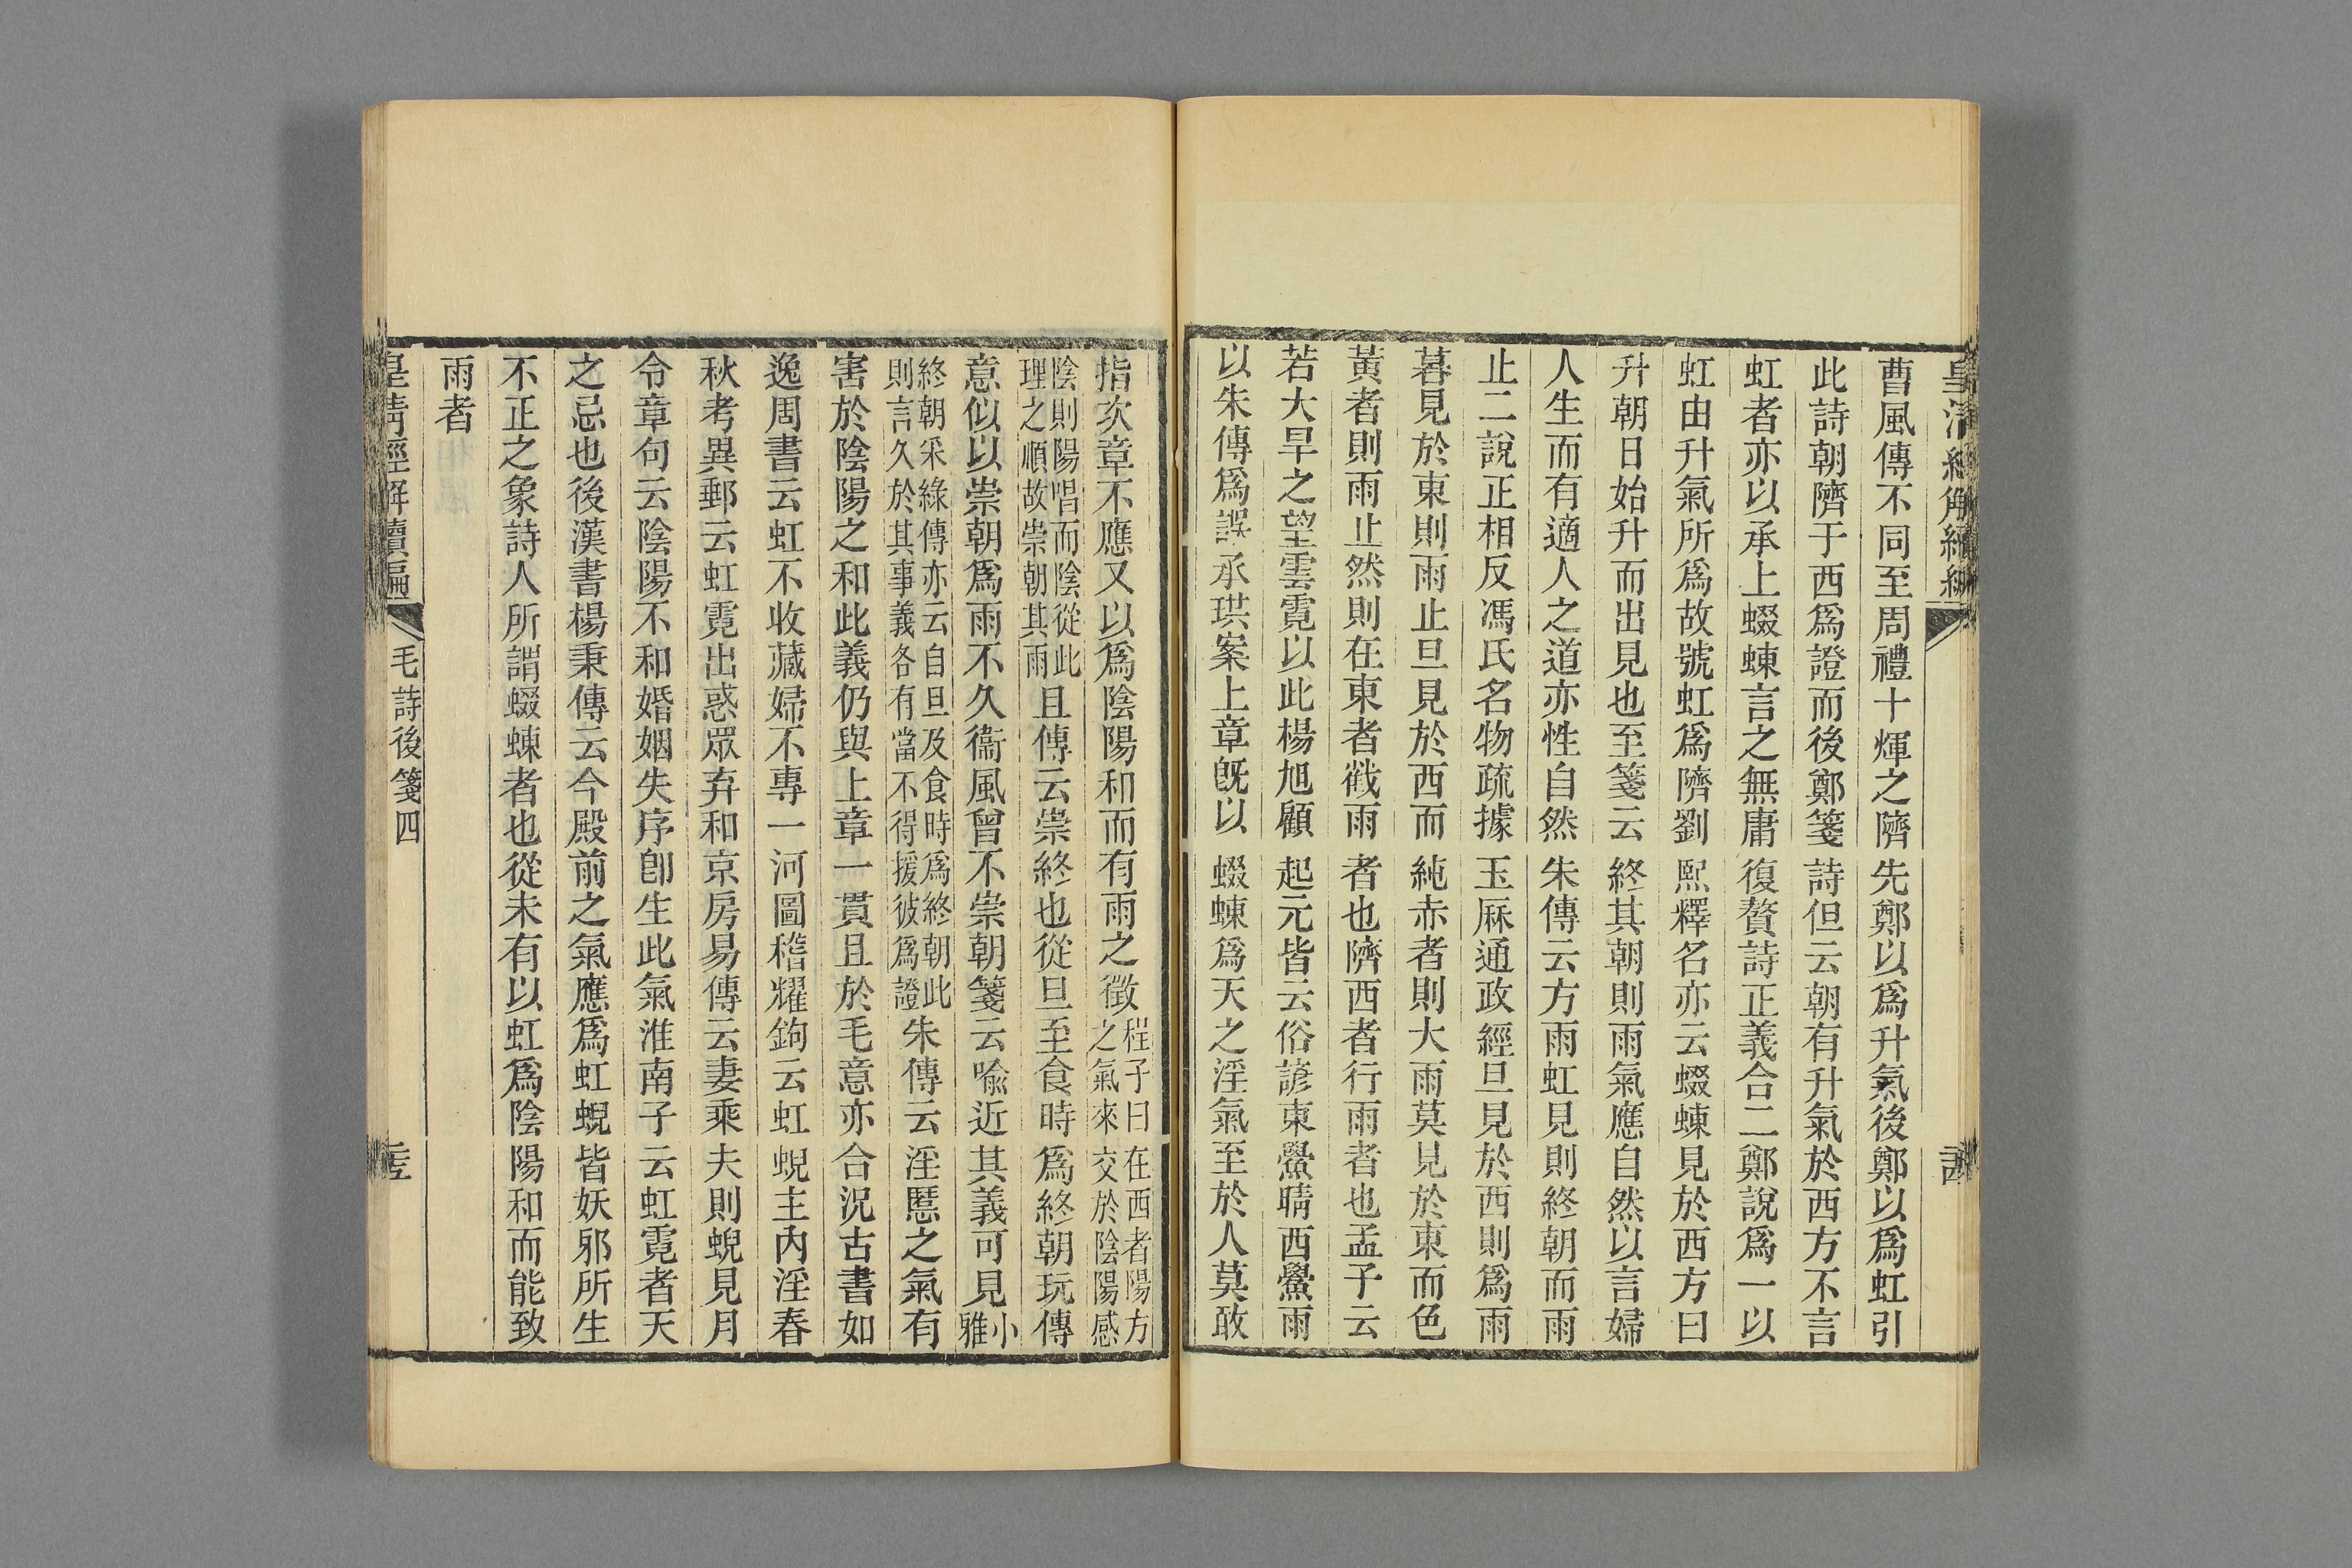 曹風傳不同至周禮十煇之隮先鄭以爲升氣後鄭以爲虹引
此詩朝隮于西爲證而後鄭箋詩但云朝有升氣於西方不言
虹者亦以承上蝃蝀言之無庸復贅詩正義合二鄭說爲一以
虹由升氣所爲故號虹爲隮劉熙釋名亦云蝃蝀見於西方曰
升朝日始升而出見也至箋云終其朝則雨氣應自然以言婦
人生而有適人之道亦性自然朱傳云方雨虹見則終朝而雨
止二說正相反馮氏名物疏據玉厤通政經旦見於西則爲雨
暮見於東則雨止旦見於西而純赤者則大雨莫見於東而色
黃者則雨止然則在東者戳雨者也隮西者行雨者也孟子云
若大旱之望雲霓以此楊旭顧起元皆云俗諺東鱟晴西鱟雨
以朱傳爲誤承珙案上章旣以蝃蝀爲天之淫氣至於人莫敢
指次章不應又以爲陰陽和而有雨之徵程子曰在西者陽方之氣來交於陰陽感
陰則陽唱而陰從此理之順故崇朝其雨且傳云崇終也從旦至食時爲終朝玩傳
意似以崇朝爲雨不久衞風曾不崇朝箋云喻近其義可見小雅
終朝采綠傳亦云自旦及食時爲終朝此則言久於其事義各有當不得援彼爲證朱傳云淫慝之氣有
害於陰陽之和此義仍與上章一貫且於毛意亦合況古書如
逸周書云虹不收藏婦不專一河圖稽耀鉤云虹蜺主內淫春
秋考異郵云虹霓出惑眾弃和京房易傳云妻乘夫則蜺見月
令章句云陰陽不和婚姻失序卽生此氣淮南子云虹霓者天
之忌也後漢書楊秉傳云今殿前之氣應爲虹蜺皆妖邪所生
不正之象詩人所謂蝃蝀者也從未有以虹爲陰陽和而能致
雨者
皇清經解續編 毛詩後箋四